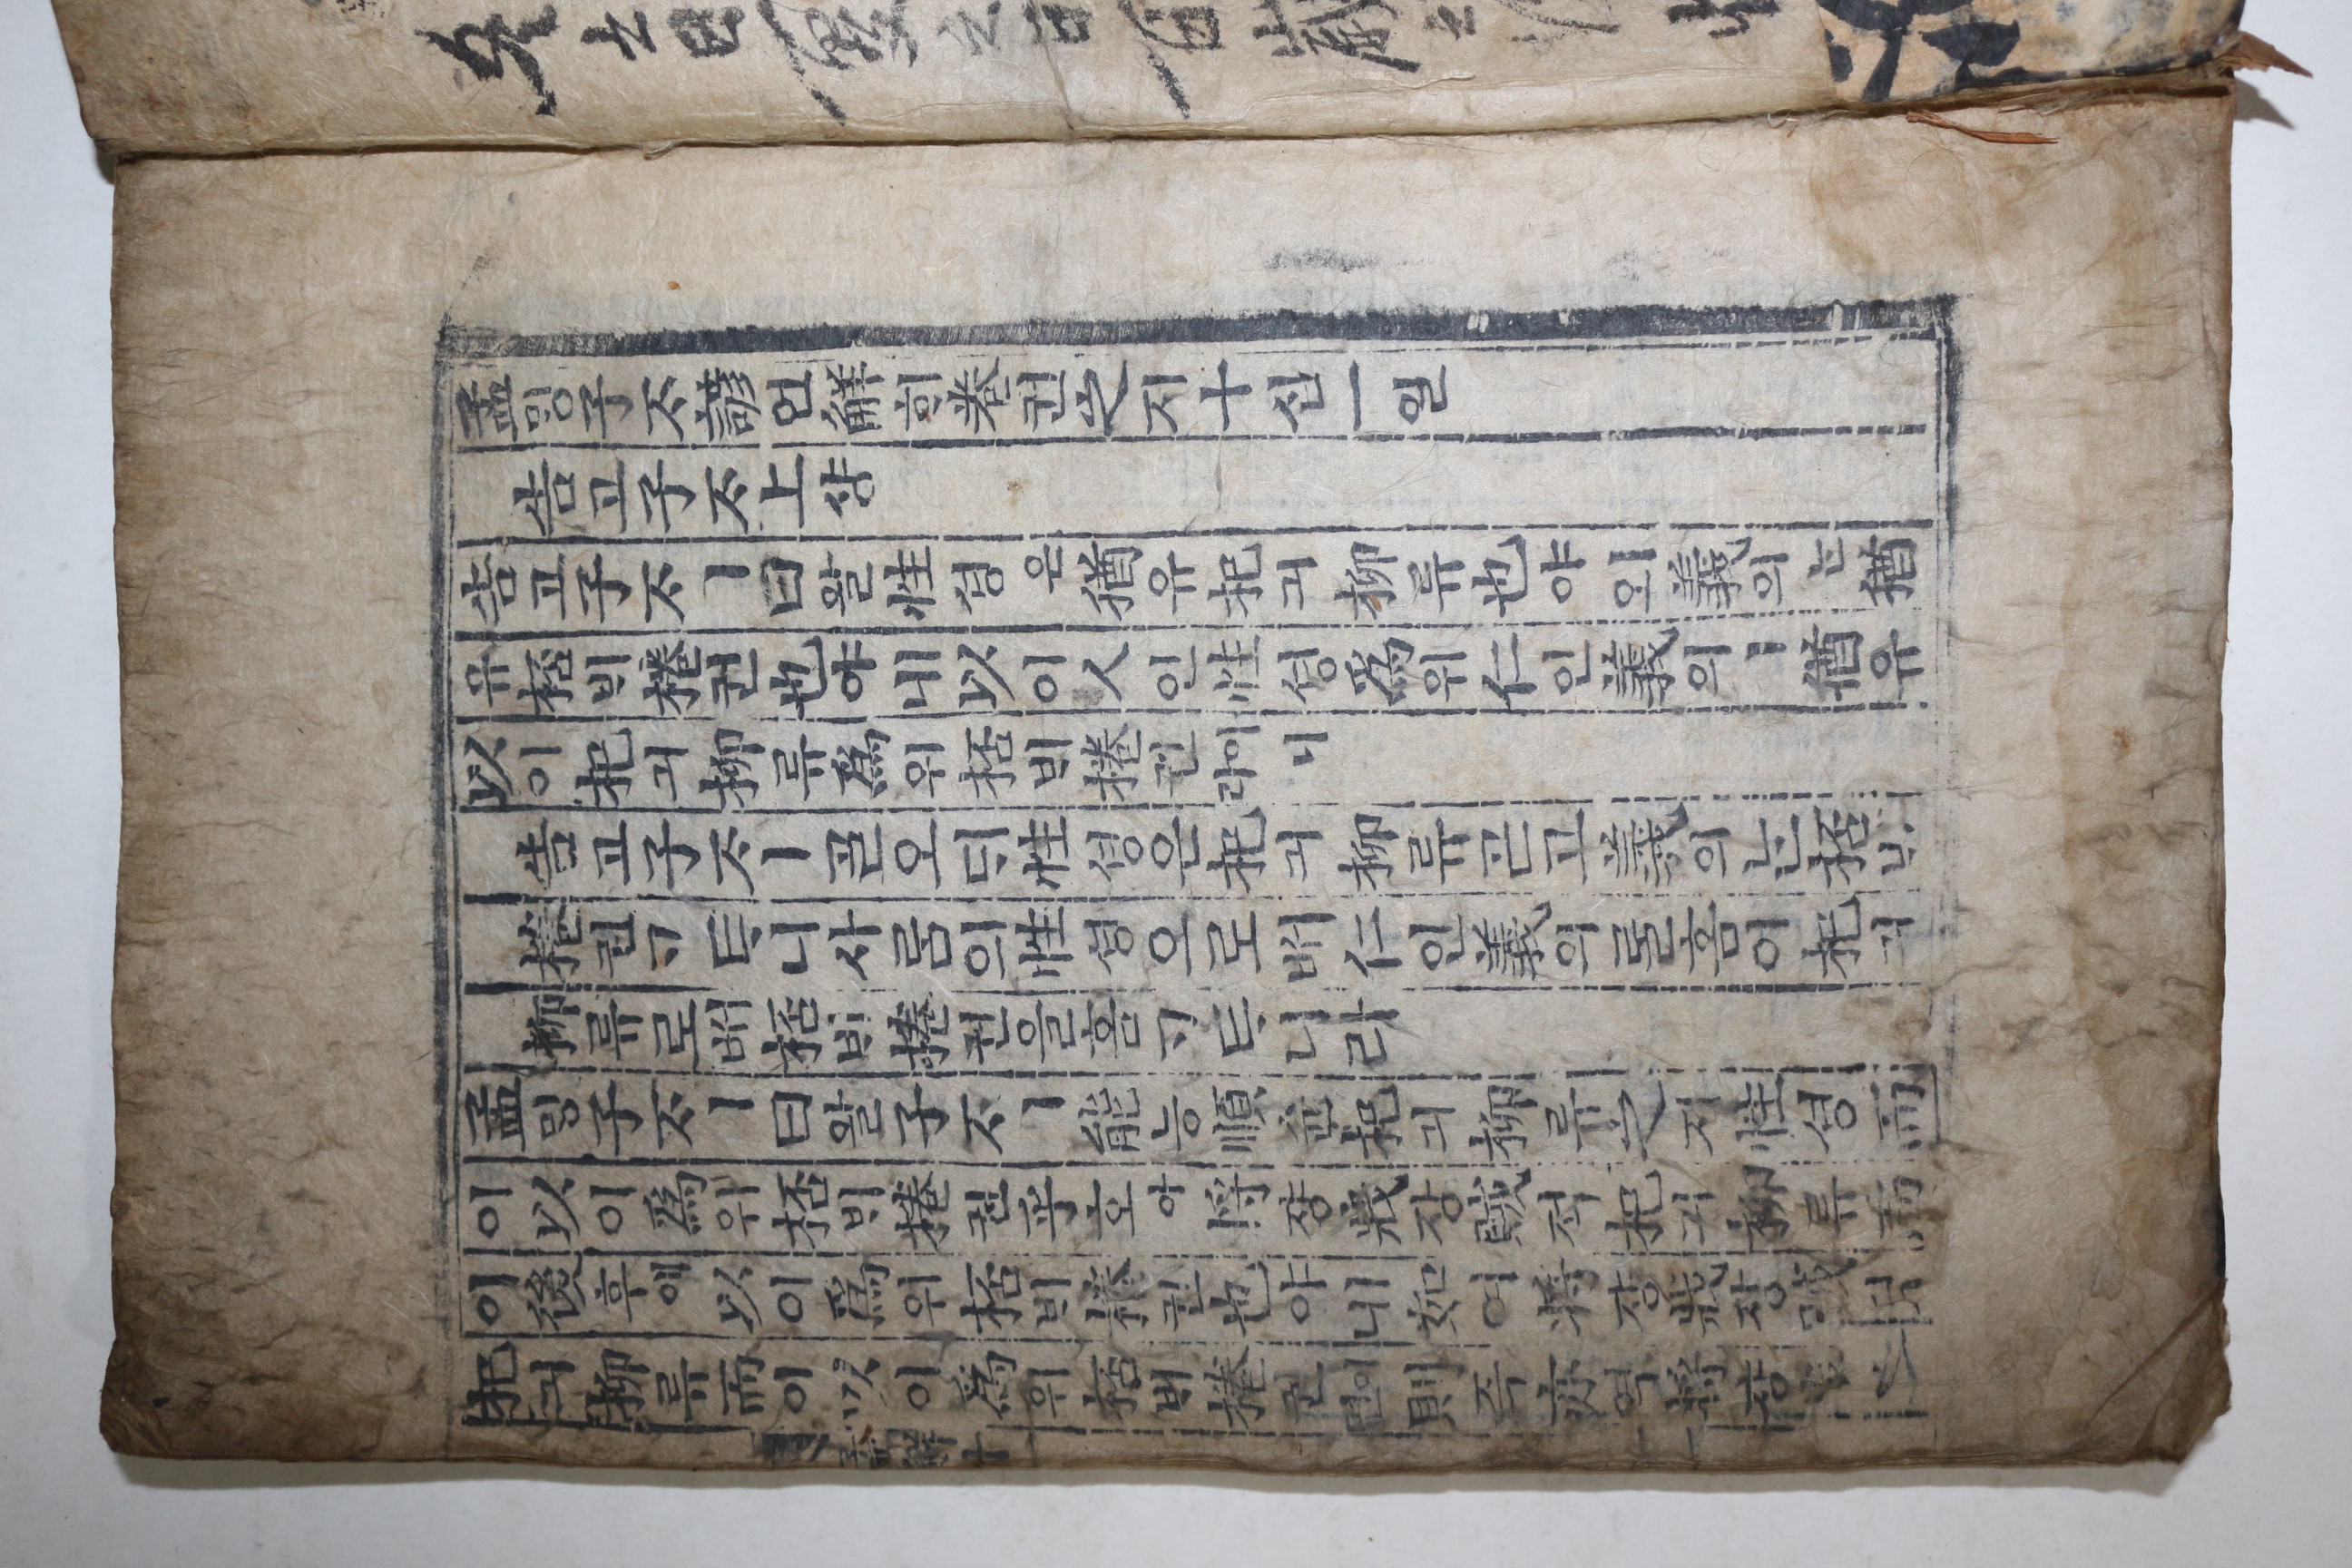 孟ᄆᆡᆼ子ᄌᆞ諺언解ᄒᆡ卷권之지十십一일
告고子ᄌᆞ上샹
告고子ᄌᆞㅣ曰왈性셩은猶유杞긔柳류也야ㅣ오義의ᄂᆞᆫ猶
유桮ᄇᆡ棬권也야ㅣ니以이人인性셩爲위仁인義의ㅣ猶유
以이杞긔柳류爲위桮ᄇᆡ棬권이니라
告고子ᄌᆞㅣᄀᆞᆯ오ᄃᆡ性셩은杞긔柳류ᄀᆞᆮ고義의ᄂᆞᆫ桮ᄇᆡ
棬권ᄀᆞᄐᆞ니사ᄅᆞᆷ의性셩으로ᄡᅥ仁인義의ᄅᆞᆯ홈이杞긔
柳류로ᄡᅥ桮ᄇᆡ棬권을홈ᄀᆞᄐᆞ니라
孟ᄆᆡᆼ子ᄌᆞㅣ曰왈子ᄌᆞㅣ能능順슌杞긔柳류之지性셩而
이以이爲위桮ᄇᆡ棬권乎호아將쟝戕쟝賊적杞긔柳류而
이後후에以이爲위桮ᄇᆡ棬권也야ㅣ니如여將쟝戕쟝賊적
杞긔柳류而이以이爲위桮ᄇᆡ棬권이면則즉亦역將쟝